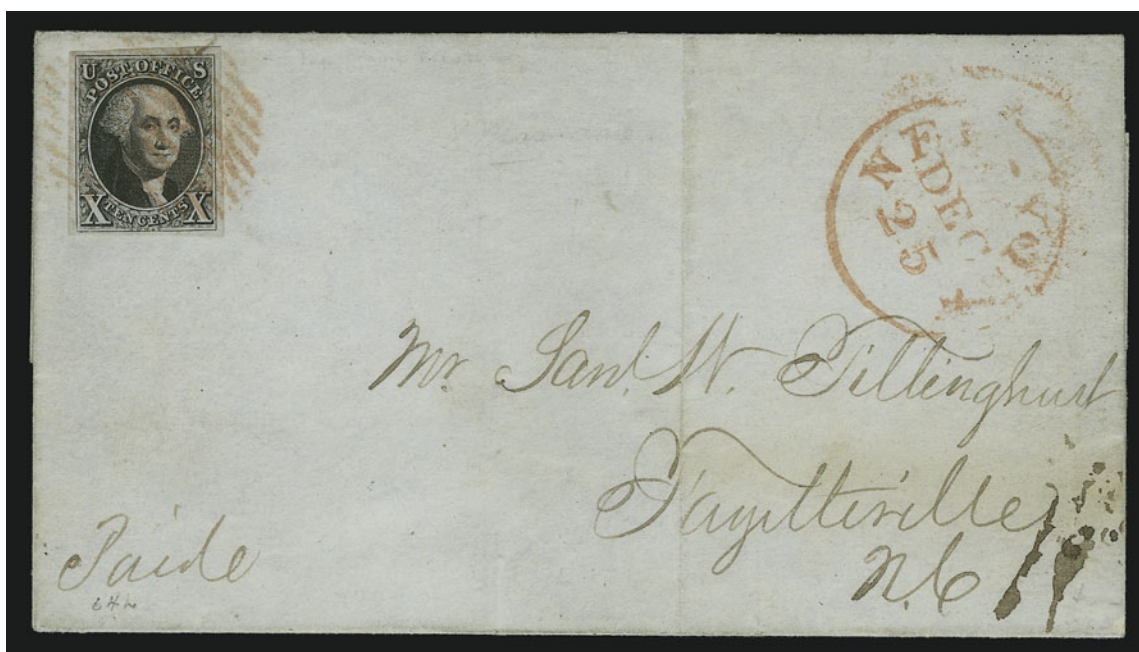 U S
POST OFFICE
X TEN CENTS X
DEC
25
Mr. Saml. W. Tillinghust
Fayetteville
N.C
Paid